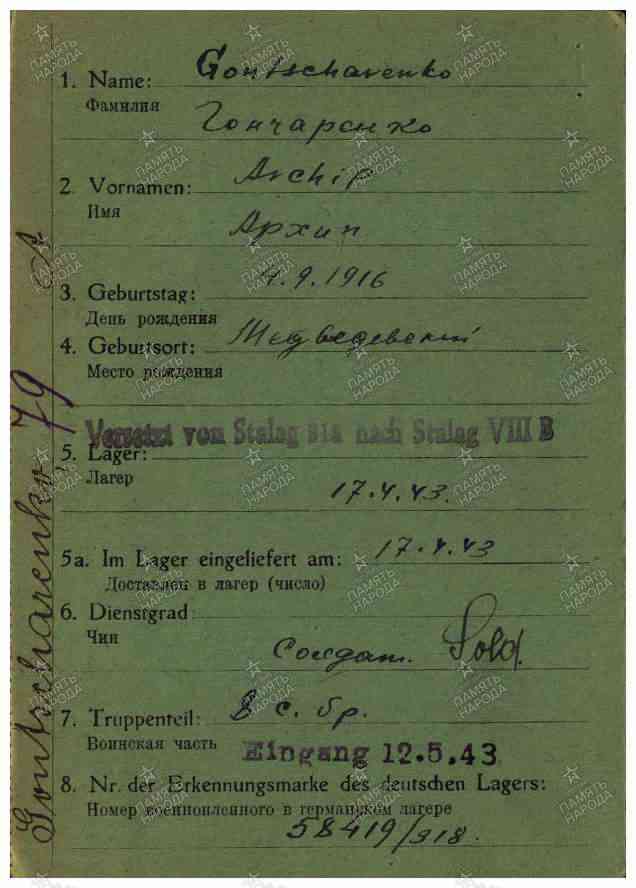 1. Name: Gontscharenko
Фамилия
Гончаренко
2. Vornamen: Archip
Имя
Архип
4.9.1916
3. Geburtstag:
День рождения
4. Geburtsort: Медведевский
Место рождения
Versetzt vom Stalag 318 nach Stalag VIII B
5. Lager:
Лагер
17.4.43.
5a. Im Lager eingeliefert am: 17.4.43
Доставлен в лагер (число)
6. Dienstgrad:
Чин
Солдат. Sold.
7. Truppenteil: 8 с. бр.
Воинская часть
Eingang 12.5.43
8. Nr. der Erkennungsmarke des deutschen Lagers:
Номер военнопленного в германском лагере
58419/318.
Gontscharenko, 79 A
ПАМЯТЬ
НАРОДА